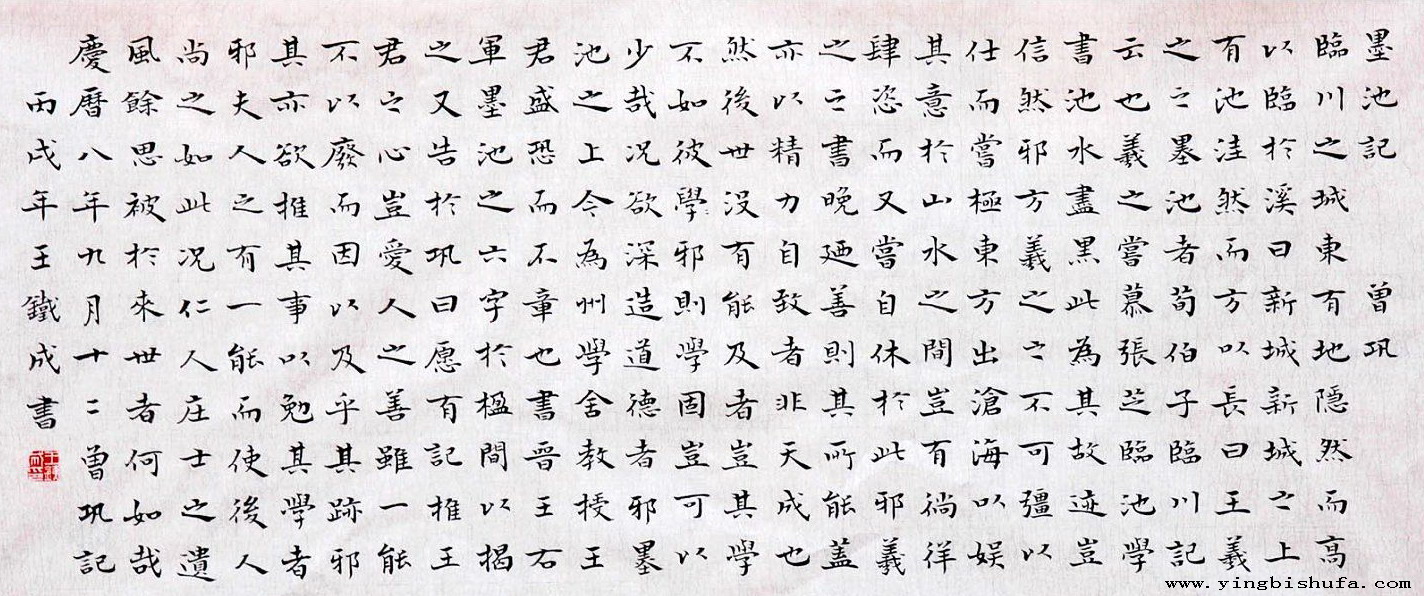 墨池記 曾巩
臨川之城東有地隱然而高
以臨於溪曰新城新城之上
有池洼然而方以長曰王羲
之之墨池者荀伯子臨川記
云也羲之嘗慕張芝臨池學
書池水盡黑此為其故迹豈
信然邪方羲之之不可彊以
仕而嘗極東方出滄海以娱
其意於山水之間豈有徜徉
肆恣而又嘗自休於此邪羲
之之書晚廼善則其所能蓋
亦以精力自致者非天成也
然後世没有能及者豈其學
不如彼學邪則學固豈可以
少哉况欲深造道德者邪墨
池之上今為州學舍教授王
君盛恐而不章也書晉王右
軍墨池之六字於楹間以揭
之又告於巩曰愿有記推王
君之心豈愛人之善雖一能
不以廢而因以及乎其跡邪
其亦欲推其事以勉其學者
邪夫人之有一能而使後人
尚之如此况仁人庄士之遺
風餘思被於來世者何如哉
慶曆八年九月十二曾巩記
丙戌年王鐵成書
www.yingbishufa.com